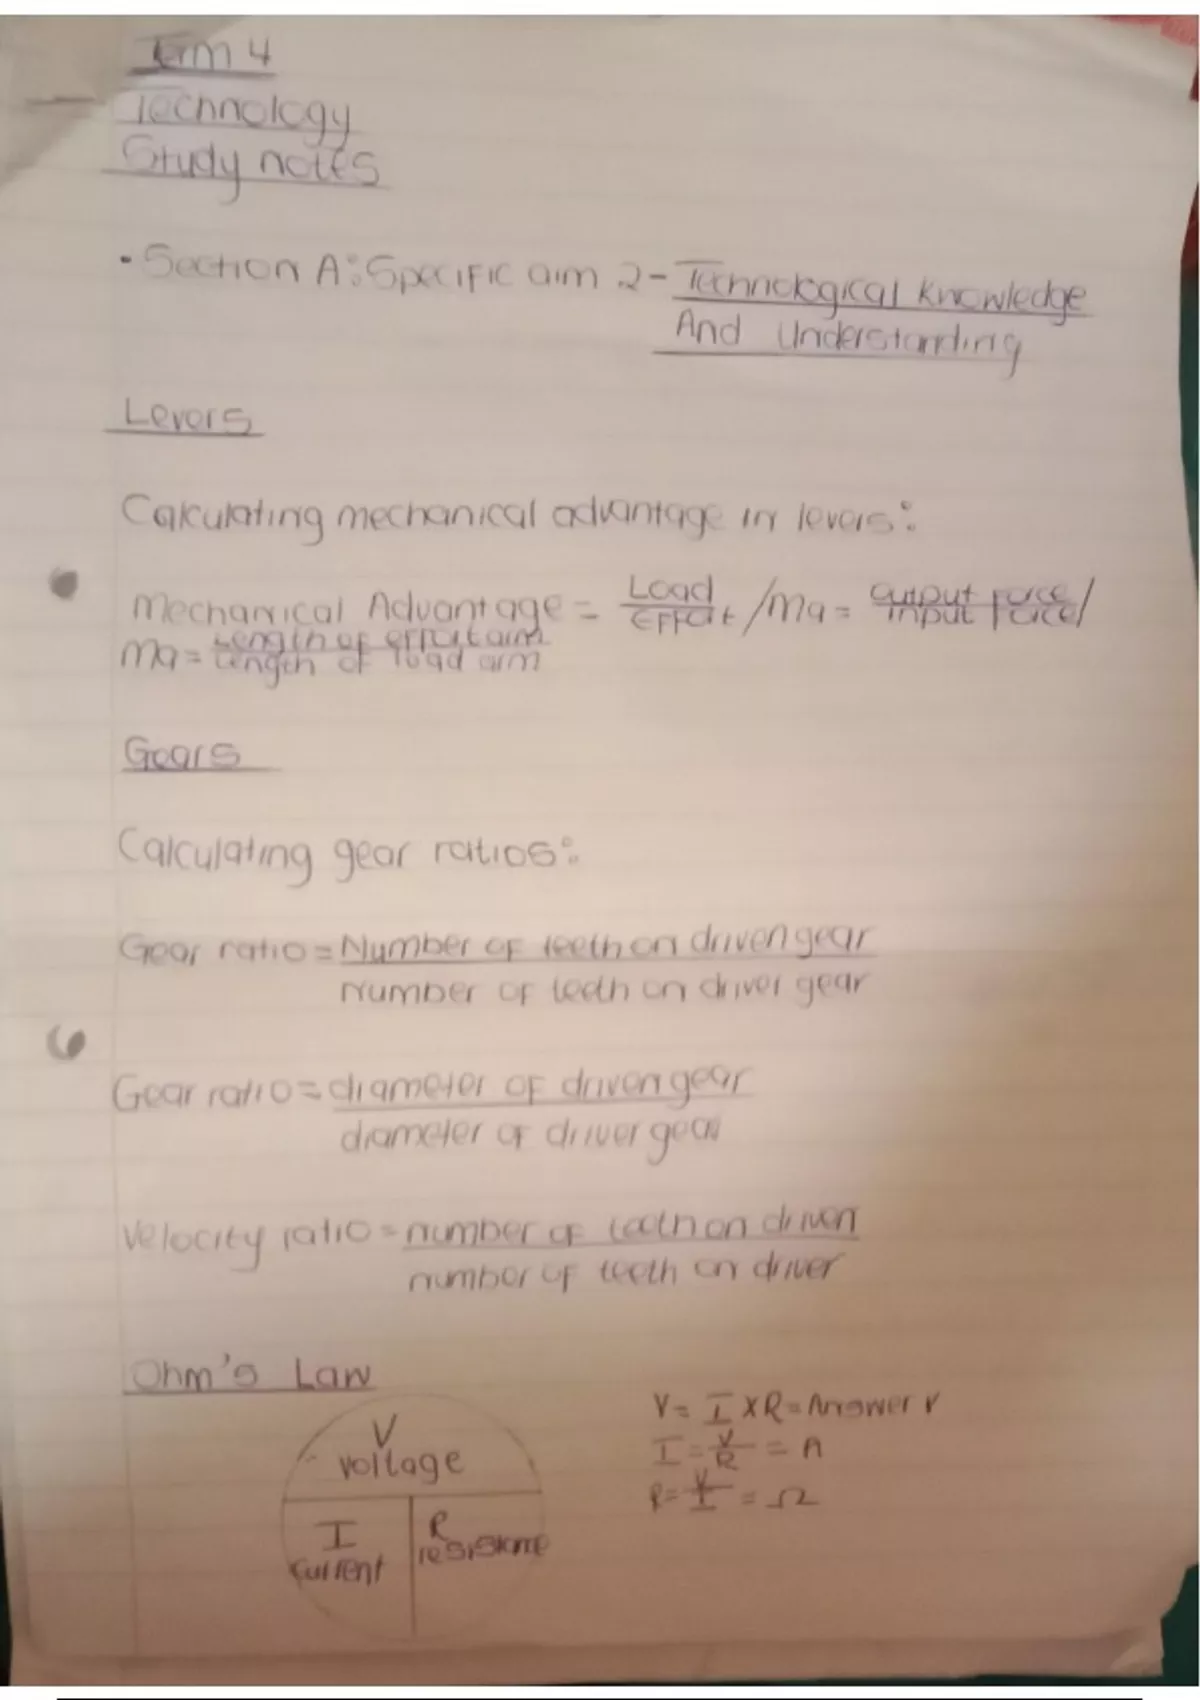 Term 4
Technology
Study notes
• Section A: Specific aim 2 - Technological knowledge
And Understanding
Levers
Calculating mechanical advantage in levers:
Mechanical Advantage = Load/Effort / Ma = output force/input force /
Ma = Length of effort arm/Length of load arm
Gears
Calculating gear ratios:
Gear ratio = Number of teeth on driven gear
number of teeth on driver gear
Gear ratio = diameter of driven gear
diameter of driver gear
Velocity ratio = number of teeth on driven
number of teeth on driver
Ohm's Law
V
voltage
I
current
R
resistance
V = I x R = Answer V
I = V/R = A
R = V/I = Ω